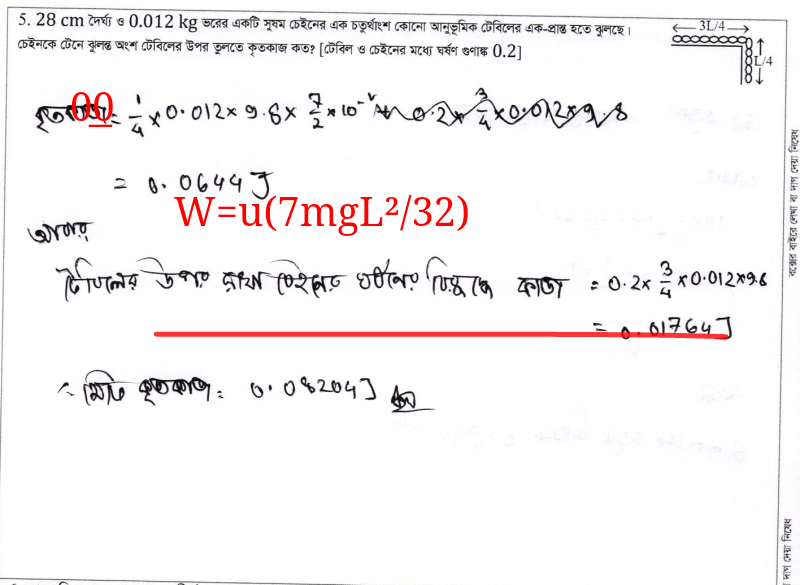 5. 28 cm দৈর্ঘ্য ও 0.012 kg ভরের একটি সুষম চেইনের এক চতুর্থাংশ কোনো আনুভূমিক টেবিলের এক-প্রান্ত হতে ঝুলছে।
চেইনকে টেনে ঝুলন্ত অংশ টেবিলের উপর তুলতে কৃতকাজ কত? [টেবিল ও চেইনের মধ্যে ঘর্ষণ গুণাঙ্ক 0.2]
3L/4
L/4
00
কৃতকাজ = 1/4 × 0.012 × 9.8 × 7/2 × 10⁻² + 0.2 × 3/4 × 0.012 × 9.8
= 0.0644 J
W=u(7mgL²/32)
আবার
টেবিলের উপর রাখা চেইনের ঘর্ষনের বিরুদ্ধে কাজ = 0.2 × 3/4 × 0.012 × 9.8
= 0.01764 J
∴ মোট কৃতকাজ = 0.08204 J
বক্সের বাইরে লেখা বা দাগ দেয়া নিষেধ
দাগ দেয়া নিষেধ